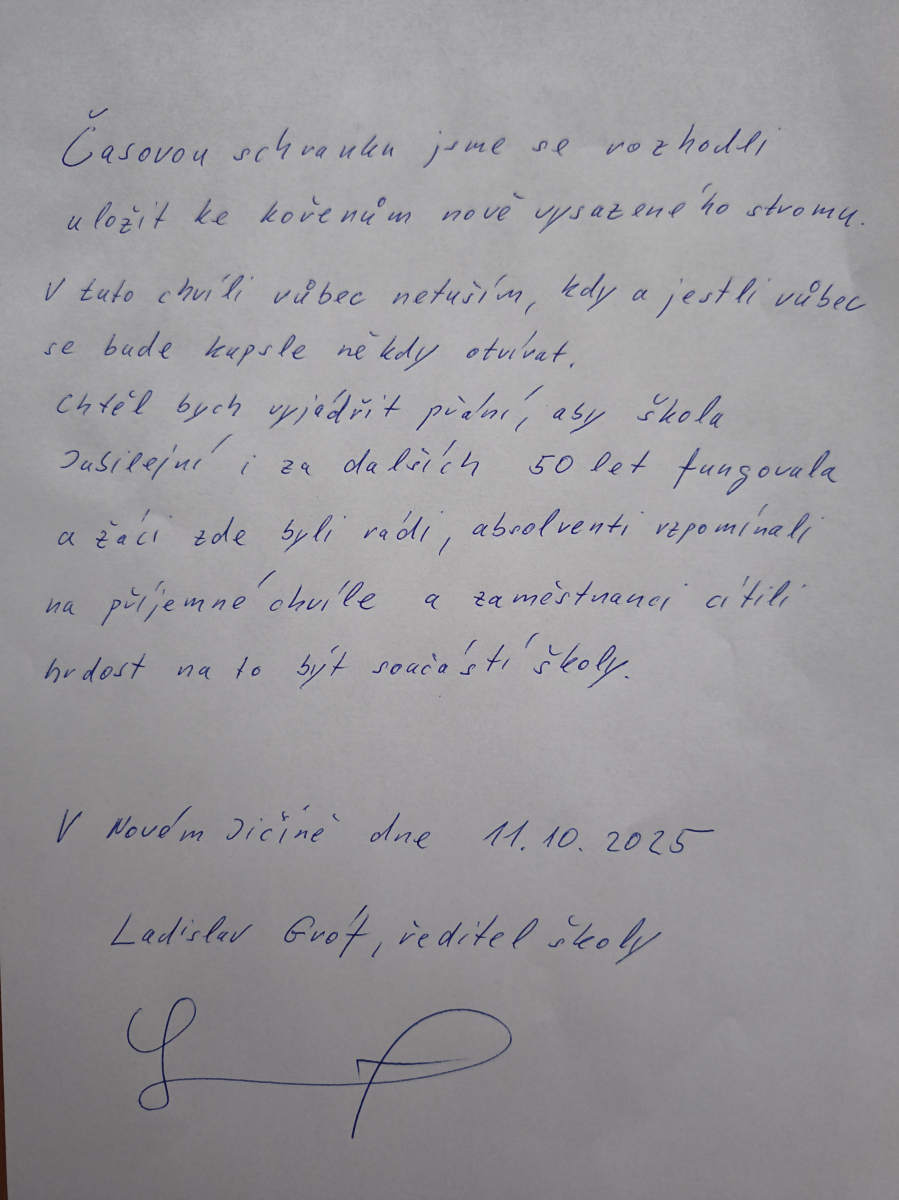 Časovou schranku jsme se rozhodli
uložit ke kořenům nově vysazeného stromu.
V tuto chvíli vůbec netuším, kdy a jestli vůbec
se bude kapsle někdy otvírat.
Chtěl bych vyjádřit přání, aby škola
Jubilejní i za dalších 50 let fungovala
a žáci zde byli rádi, absolventi vzpomínali
na příjemné chvíle a zaměstnanci cítili
hrdost na to být součástí školy.
V Novém Jičíně dne 11.10.2025
Ladislav Gróf, ředitel školy